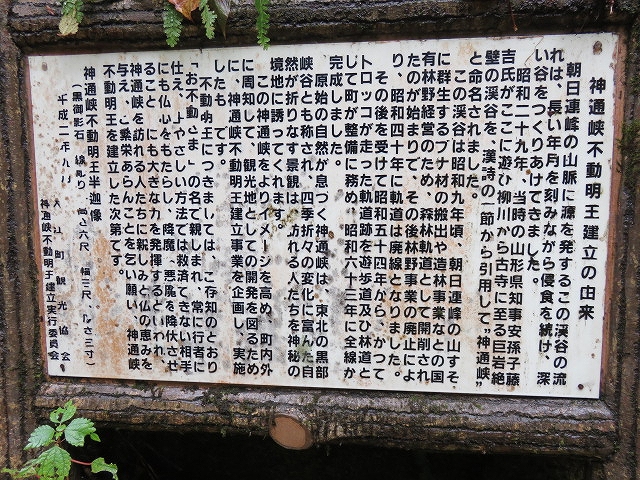 神通峡不動明王建立の由来
朝日連峰の山脈に源を発するこの渓谷の流
れは、長い年月を刻みながら侵食を続け、深
い谷をつくりあげてきました。
昭和二十九年、当時の山形県知事安孫子藤
吉氏がここに遊び柳川から古寺に至る巨岩絶
壁の渓谷を、漢詩の一節から引用して"神通峡"
と命名されました。
この渓谷は昭和九年頃、朝日連峰の山すそ
に群生するブナ材の搬出や造林事業などの国
有林野経営のため、森林軌道として開削され
たのが始まりで、その後林野事業の廃止によ
り、昭和四十年に軌道は廃線となりました。
その後を受けて昭和五十四年から、かつて
トロッコが走った軌道跡を遊歩道及び林道と
して町が整備に務め、昭和六十三年に全線が
完成しました。
原始の自然が息づく神通峡は、東北の黒部
峡谷とも称され、四季折々の変化に富んだ自
然が折りなす景観は、訪れる人たちを神秘の
境地に誘ってくれます。
この神通峡をよりイメージを高め、町内外
に周知して、観光地としての開発を図るため
に、神通峡不動明王建立事業を企画し、実施
したものです。
不動明王につきましては、ご存知のとおり
「お不動さま」の名で親しまれ、常に行者に
仕え、よやさしい方法では救済できない相手
にも仏心をもたらし、降魔、悪魔を降伏させ
ることにも大きな力を発揮するといわれ、
神通峡を訪れる人たちに親しみと仏の恵みを
与え、ご繁栄あらんことを乞い願い、神通峡
不動明王を建立した次第です。
神通峡不動明王半迦像
(黒御影石 線彫り 六尺 幅三尺、厚さ三寸)
平成二年八月
大江町観光協会
神通峡不動明王建立実行委員会